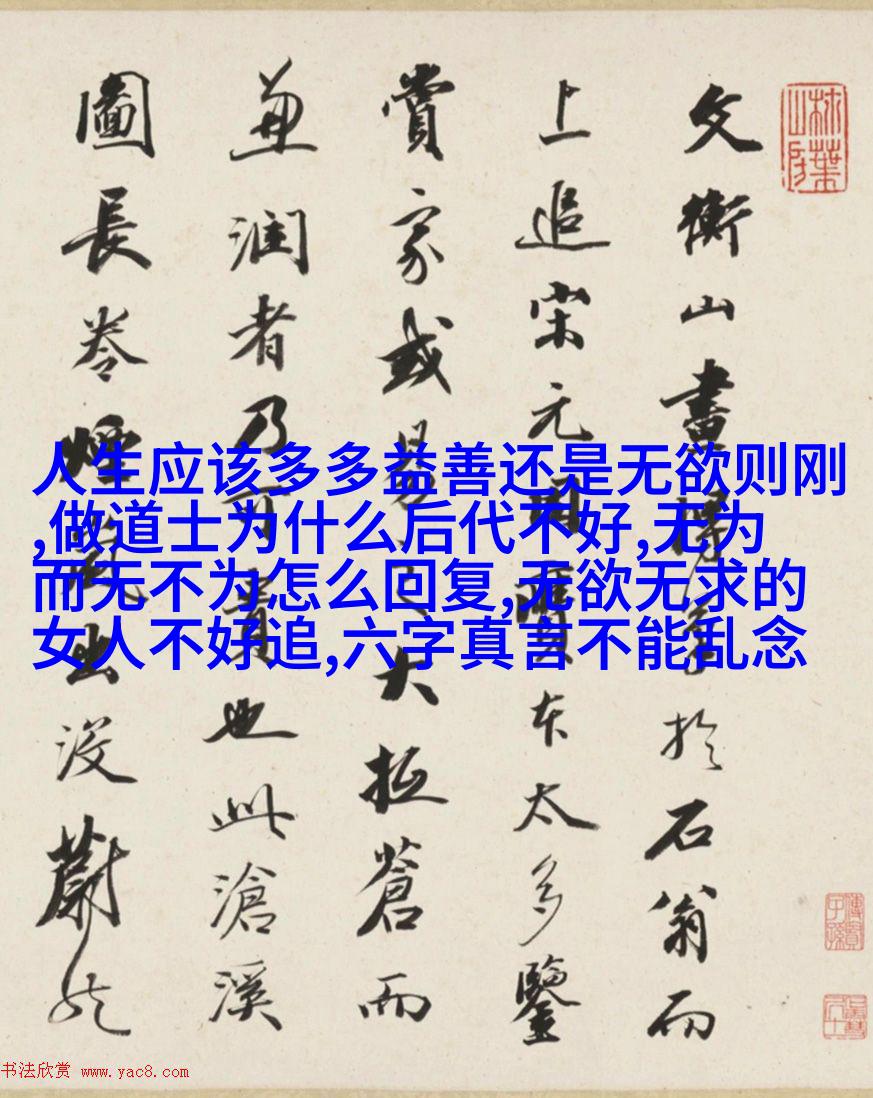 文衡山畫得於石翁而
上追宋元贋本太多鑒
賞家或易之大抵蒼而
兼润者乃可貴也此滄溪
圖長卷煙雲出没蔚然
人生应该多多益善还是无欲则刚
,做道士为什么后代不好,无为
而无不为怎么回复,无欲无求的
女人不好追,六字真言不能乱念
书法欣赏 www.yac8.com